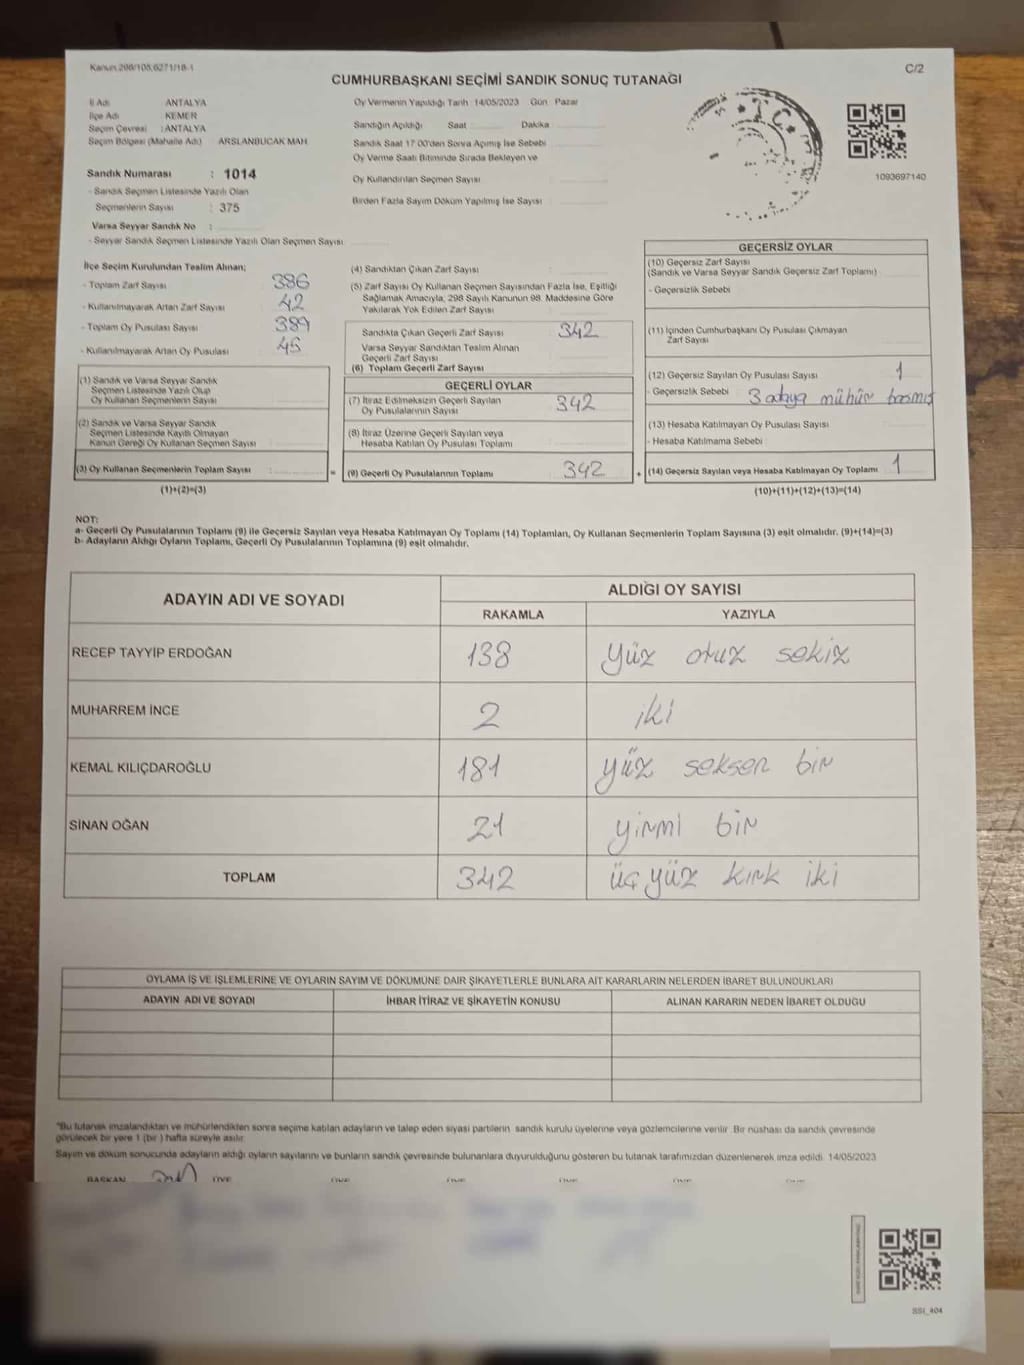 Kanun 298/105,6271/18-1
C/2
CUMHURBAŞKANI SEÇİMİ SANDIK SONUÇ TUTANAĞI
İl Adı ANTALYA
İlçe Adı KEMER
Seçim Çevresi : ANTALYA
Seçim Bölgesi (Mahalle Adı) ARSLANBUCAK MAH.
Sandık Numarası : 1014
- Sandık Seçmen Listesinde Yazılı Olan
Seçmenlerin Sayısı : 375
Varsa Seyyar Sandık No :
- Seyyar Sandık Seçmen Listesinde Yazılı Olan Seçmen Sayısı
Oy Vermenin Yapıldığı Tarih 14/05/2023 Gün Pazar
Sandığın Açıldığı Saat Dakika
Sandık Saat 17 00'den Sonra Açımış İse Sebebi
Oy Verme Saati Bitiminde Sırada Bekleyen ve
Oy Kullandırılan Seçmen Sayısı
Birden Fazla Sayım Döküm Yapılmış İse Sayısı
T.C.
1093697140
İlçe Seçim Kurulundan Teslim Alınan;
- Toplam Zarf Sayısı 386
- Kullanılmayarak Artan Zarf Sayısı 42
- Toplam Oy Pusulası Sayısı 389
- Kullanılmayarak Artan Oy Pusulası 45
(1) Sandık ve Varsa Seyyar Sandık
Seçmen Listesinde Yazılı Olup
Oy Kullanan Seçmenlerin Sayısı
(2) Sandık ve Varsa Seyyar Sandık
Seçmen Listesinde Kayıtlı Olmayan
Kanun Gereği Oy Kullanan Seçmen Sayısı
(3) Oy Kullanan Seçmenlerin Toplam Sayısı :
(1)+(2)=(3)
=
(4) Sandıktan Çıkan Zarf Sayısı :
(5) Zarf Sayısı Oy Kullanan Seçmen Sayısından Fazla İse, Eşitliği
Sağlamak Amacıyla, 298 Sayılı Kanunun 98. Maddesine Göre
Yakılarak Yok Edilen Zarf Sayısı
Sandıkta Çıkan Geçerli Zarf Sayısı 342
Varsa Seyyar Sandıktan Teslim Alınan
Geçerli Zarf Sayısı
(6) Toplam Geçerli Zarf Sayısı
GEÇERLİ OYLAR
(7) İtiraz Edilmeksizin Geçerli Sayılan
Oy Pusulalarının Sayısı 342
(8) İtiraz Üzerine Geçerli Sayılan veya
Hesaba Katılan Oy Pusulası Toplamı
(9) Geçerli Oy Pusulalarının Toplamı 342
+
GEÇERSİZ OYLAR
(10) Geçersiz Zarf Sayısı
(Sandık ve Varsa Seyyar Sandık Geçersiz Zarf Toplamı)
- Geçersizlik Sebebi
(11) İçinden Cumhurbaşkanı Oy Pusulası Çıkmayan
Zarf Sayısı
(12) Geçersiz Sayılan Oy Pusulası Sayısı 1
- Geçersizlik Sebebi 3 adaya mühür basmış
(13) Hesaba Katılmayan Oy Pusulası Sayısı
- Hesaba Katılmama Sebebi
(14) Geçersiz Sayılan veya Hesaba Katılmayan Oy Toplamı 1
(10)+(11)+(12)+(13)=(14)
NOT:
a- Geçerli Oy Pusulalarının Toplamı (9) ile Geçersiz Sayılan veya Hesaba Katılmayan Oy Toplamı (14) Toplamları, Oy Kullanan Seçmenlerin Toplam Sayısına (3) eşit olmalıdır. (9)+(14)=(3)
b- Adayların Aldığı Oyların Toplamı, Geçerli Oy Pusulalarının Toplamına (9) eşit olmalıdır.
ADAYIN ADI VE SOYADI
ALDIĞI OY SAYISI
RAKAMLA YAZIYLA
RECEP TAYYİP ERDOĞAN 138 yüz otuz sekiz
MUHARREM İNCE 2 iki
KEMAL KILIÇDAROĞLU 181 yüz seksen bir
SİNAN OĞAN 21 yirmi bir
TOPLAM 342 üç yüz kırk iki
OYLAMA İŞ VE İŞLEMLERİNE VE OYLARIN SAYIM VE DÖKÜMÜNE DAİR ŞİKAYETLERLE BUNLARA AİT KARARLARIN NELERDEN İBARET BULUNDUKLARI
ADAYIN ADI VE SOYADI İHBAR İTİRAZ VE ŞİKAYETİN KONUSU ALINAN KARARIN NEDEN İBARET OLDUĞU
"Bu tutanak imzalandıktan ve mühürlendikten sonra seçime katılan adayların ve talep eden siyasi partilerin sandık kurulu üyelerine veya gözlemcilerine verilir. Bir nüshası da sandık çevresinde
görülecek bir yere 1 (bir ) hafta süreyle asılır.
Sayım ve döküm sonucunda adayların aldığı oyların sayılarını ve bunların sandık çevresinde bulunanlara duyurulduğunu gösteren bu tutanak tarafımızdan düzenlenerek imza edildi. 14/05/2023
BAŞKAN ÜYE ÜYE ÜYE ÜYE ÜYE
SSI_404